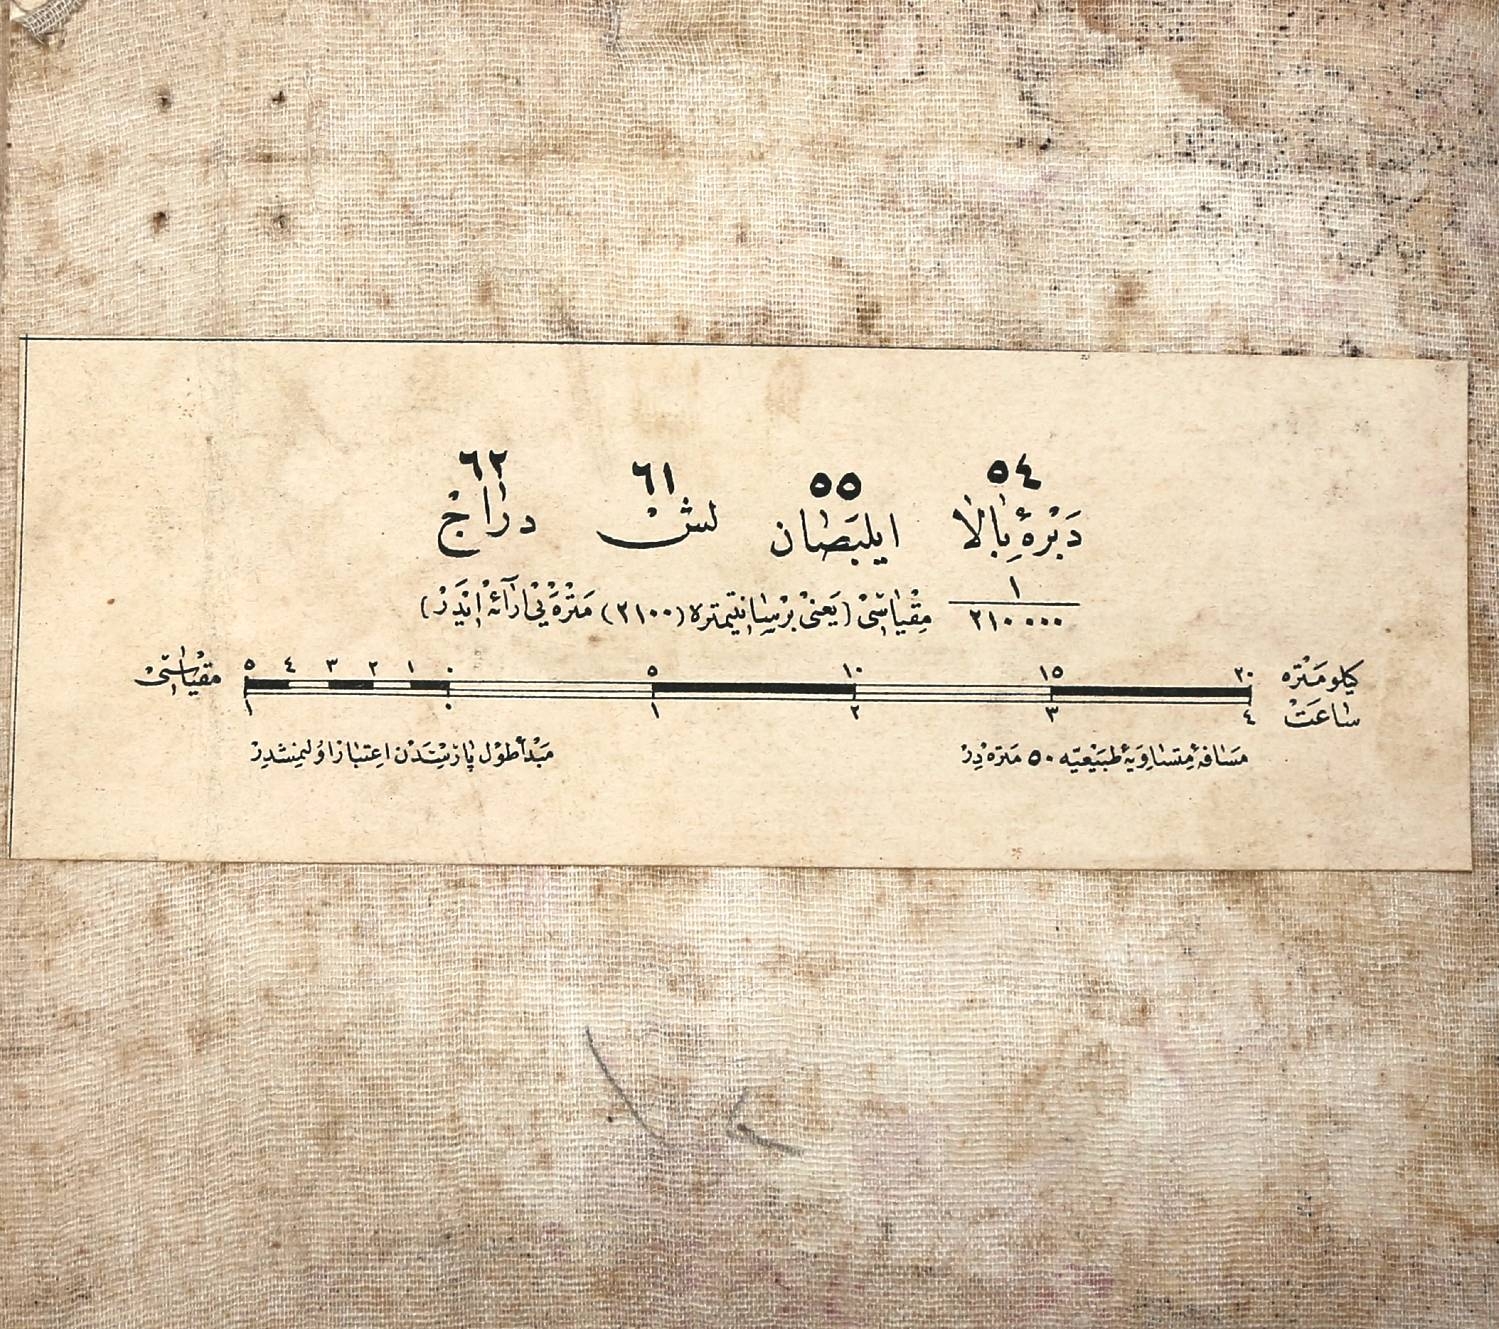 ٥٤ ٥٥ ٦١ ٦٢
دبرهٔ بالا ایلبصان لش دراج
١
٢١٠٠٠٠ مقیاسی (یعنی بر سانتیمتره (٢١٠٠) متره یی ارائه ایدر)
کیلومتره ٢٠ ١٥ ١٠ ٥ ٠ ١ ٢ ٣ ٤ ٥ مقیاسی
ساعت ٤ ٣ ٢ ١ ٠ ١
مسافهٔ متساویهٔ طبیعیه ٥٠ متره در
مبدأ طول پارisدن اعتبار اولنمشدر